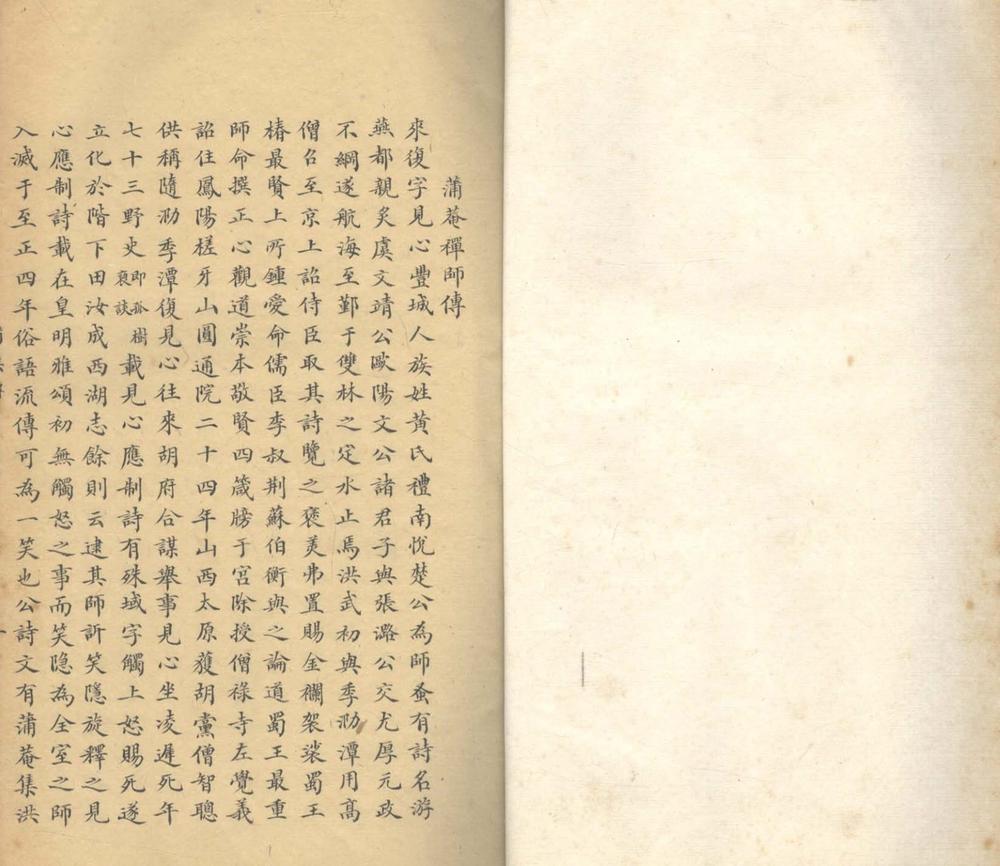 蒲菴禪師傳
來復字見心豐城人族姓黃氏禮南悅楚公為師蚤有詩名游
燕都親炙虞文靖公歐陽文公諸君子與張潞公交尤厚元政
不綱遂航海至鄞于雙林之定水止焉洪武初與季泐潭用高
僧召至京上詔侍臣取其詩覽之褒美弗置賜金襴袈裟蜀王
椿最賢上所鍾愛命儒臣李叔荆蘇伯衡與之論道蜀王最重
師命撰正心觀道崇本敬賢四箴牓于宮除授僧祿寺左覺義
詔住鳳陽槎牙山圓通院二十四年山西太原獲胡黨僧智聰
供稱隨泐季潭復見心往來胡府合謀舉事見心坐凌遲死年
七十三野史即孤樹裒談載見心應制詩有殊域字觸上怒賜死遂
立化於階下田汝成西湖志餘則云逮其師訢笑隱旋釋之見
心應制詩載在皇明雅頌初無觸怒之事而笑隐為全室之師
入滅于至正四年俗語流傳可為一笑也公詩文有蒲菴集洪